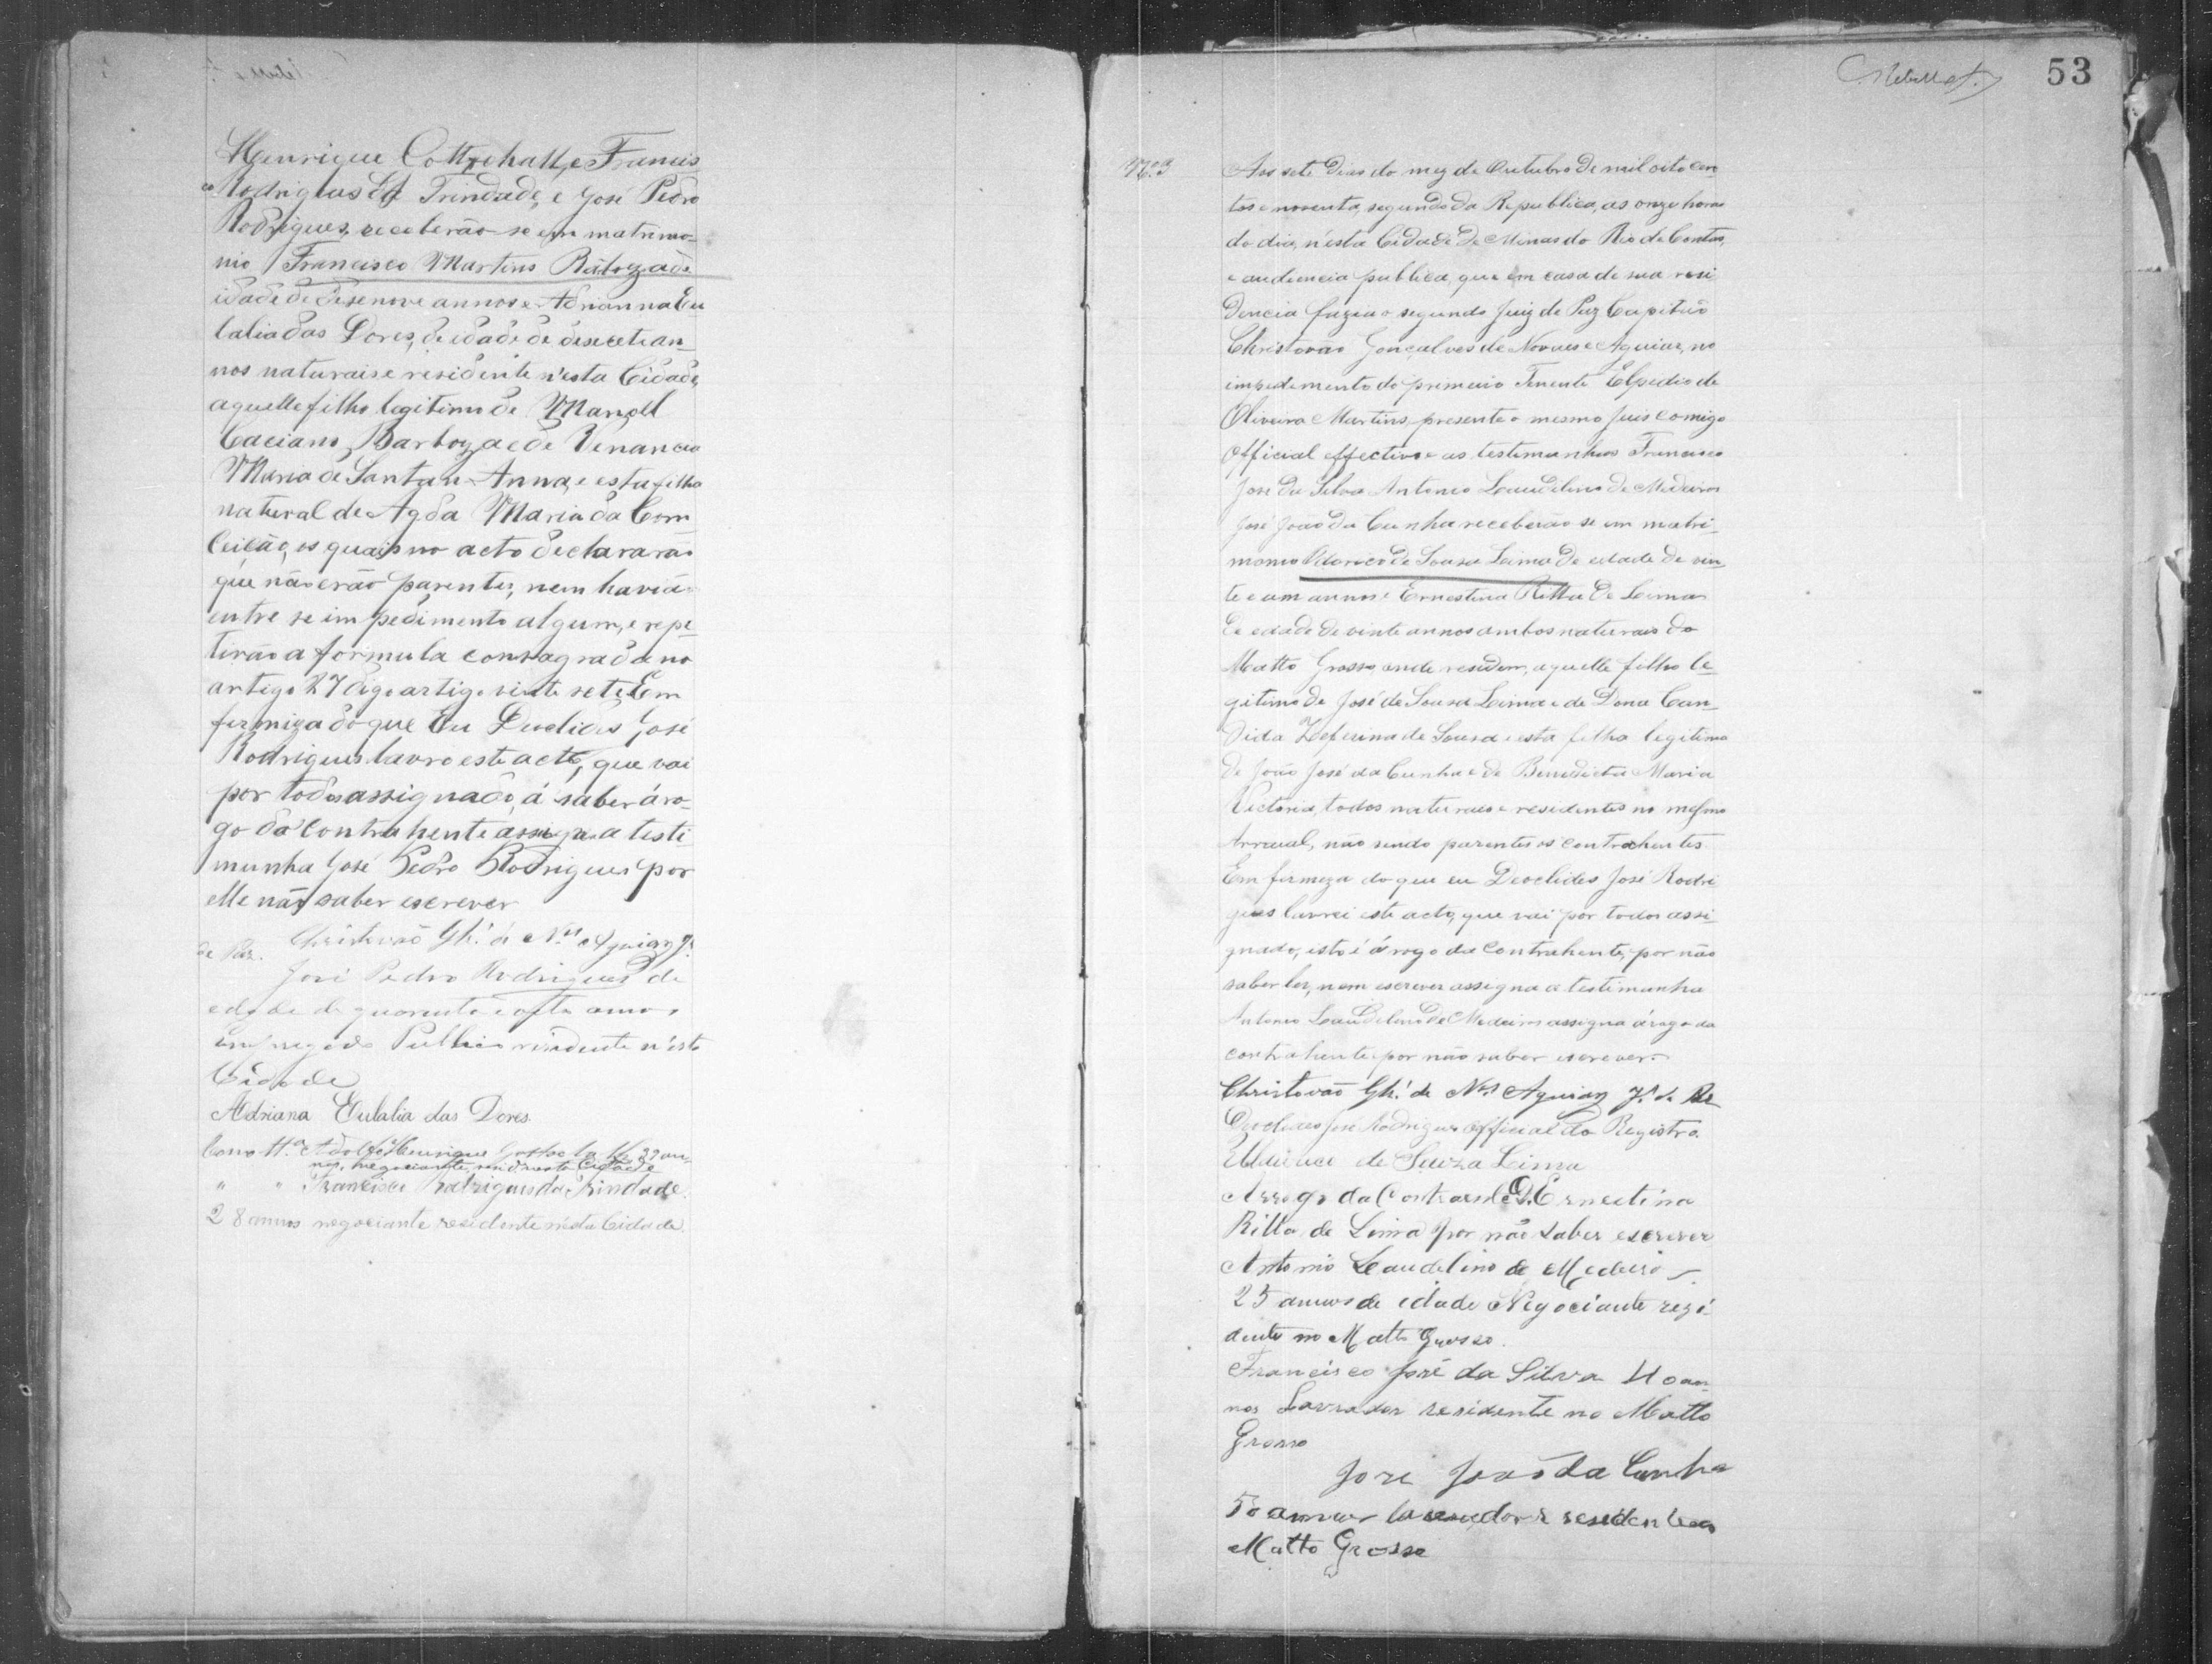 Henrique Cottschall, e Francis
co Rodrigues da Trindade, e José Pedro
Rodrigues, receberão-se em matrimo-
nio Francisco Martins Barboza de
idade de desenove annos e Adrianna Eu
lalia das Dores, de idade de desesete an-
nos naturais e residente n'esta Cidade,
aquelle filho legitimo de Manoel
Caciano Barboza e de Venancia
Maria de Santa Anna, e esta filha
natural de Agda Maria da Com
ceição, os quais no acto declararão
que não erão parentes, nem havia
entre se impedimento algum, e repe-
tirão a formula consagrada no
artigo 27 digo artigo vinte sete Em
firmiza do que Eu Deoclides José
Rodrigues lavro este acto, que vai
por todos assignado, á saber á ro-
go do contrahente assigna a testi
munha José Pedro Rodrigues por
elle não saber escrever
Christovão Glz. de N.es Aguiar J.
de Paz.
José Pedro Rodrigues de
edade de quarenta e oito annos
empregado Publico residente n'esta
Cidade
Adriana Eulalia das Dores.
Como tt.ª Adolfo Henrique Gottschall 39 an-
nos, negociante, resid nesta Cidade
" " Francisco Rodrigues da Trindade.
28 annos negociante residente nesta Cidade.
53
N.º 3
Aos sete dias do mez de Outubro de mil oito cen
tos e noventa, segundo da Republica, as onze horas
do dia, n'esta Cidade de Minas do Rio de Contas,
e audiencia publica, que em casa de sua resi
dencia fazia o segundo Juiz de Paz Capitão
Christovão Gonçalves de Novaes e Aguiar, no
impedimento do primeiro Tenente Elpedio de
Oliveira Martins, presente o mesmo Juis comigo
Official effectivo e as testimunhas Francisco
José da Silva Antonio Laudelino de Medeiros
José João da Cunha receberão se em matri-
monio de Sousa Lima de edade de vin
te e um annos e Ernestina Ritta de Lima
de edade de vinte annos ambos naturais do
Matto Grosso, onde residem, aquelle filho le-
gitimo de José de Sousa Lima e de Dona Can-
dida Zeferina de Sousa e esta filha legitima
de João José da Cunha e de Benedicta Maria
Victoria, todos naturaes e residentes no mesmo
Arraial, não sendo parentes os contrahentes.
Em firmeza do que eu Deoclides José Rodri
gues lavrei este acto, que vai por todos assi-
gnado, isto é á rogo da Contrahente, por não
saber ler, nem escrever assigna a testimunha
Antonio Laudelino de Medeiros assigna á rogo da
contrahente por não saber escrever.
Christovão Glz. de N.es Aguiar J. de Paz
Deoclides José Rodrigues Official do Registro.
de Souza Lima
Arrogo da Contraente D. Ernestina
Ritta de Lima por não saber escrever
Antonio Laudelino de Medeiros
25 annos de idade Negociante rezi-
dente no Matto Grosso.
Francisco José da Silva 40 an-
nos Lavrador residente no Matto
Grosso
José João da Cunha
50 annos lavrador e residente no
Matto Grosso